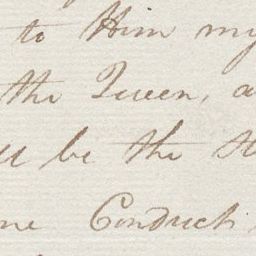 to Him my
the Queen, a
be the st
ne Conduct